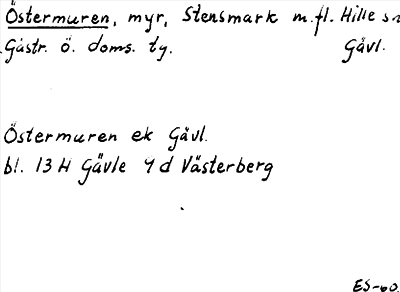 Östermuren, myr, Stensmark m.fl. Hille sn
Gästr. ö. doms. tg. Gävl.
Östermuren ek Gävl.
bl. 13 H Gävle 4 d Västerberg
ES-60